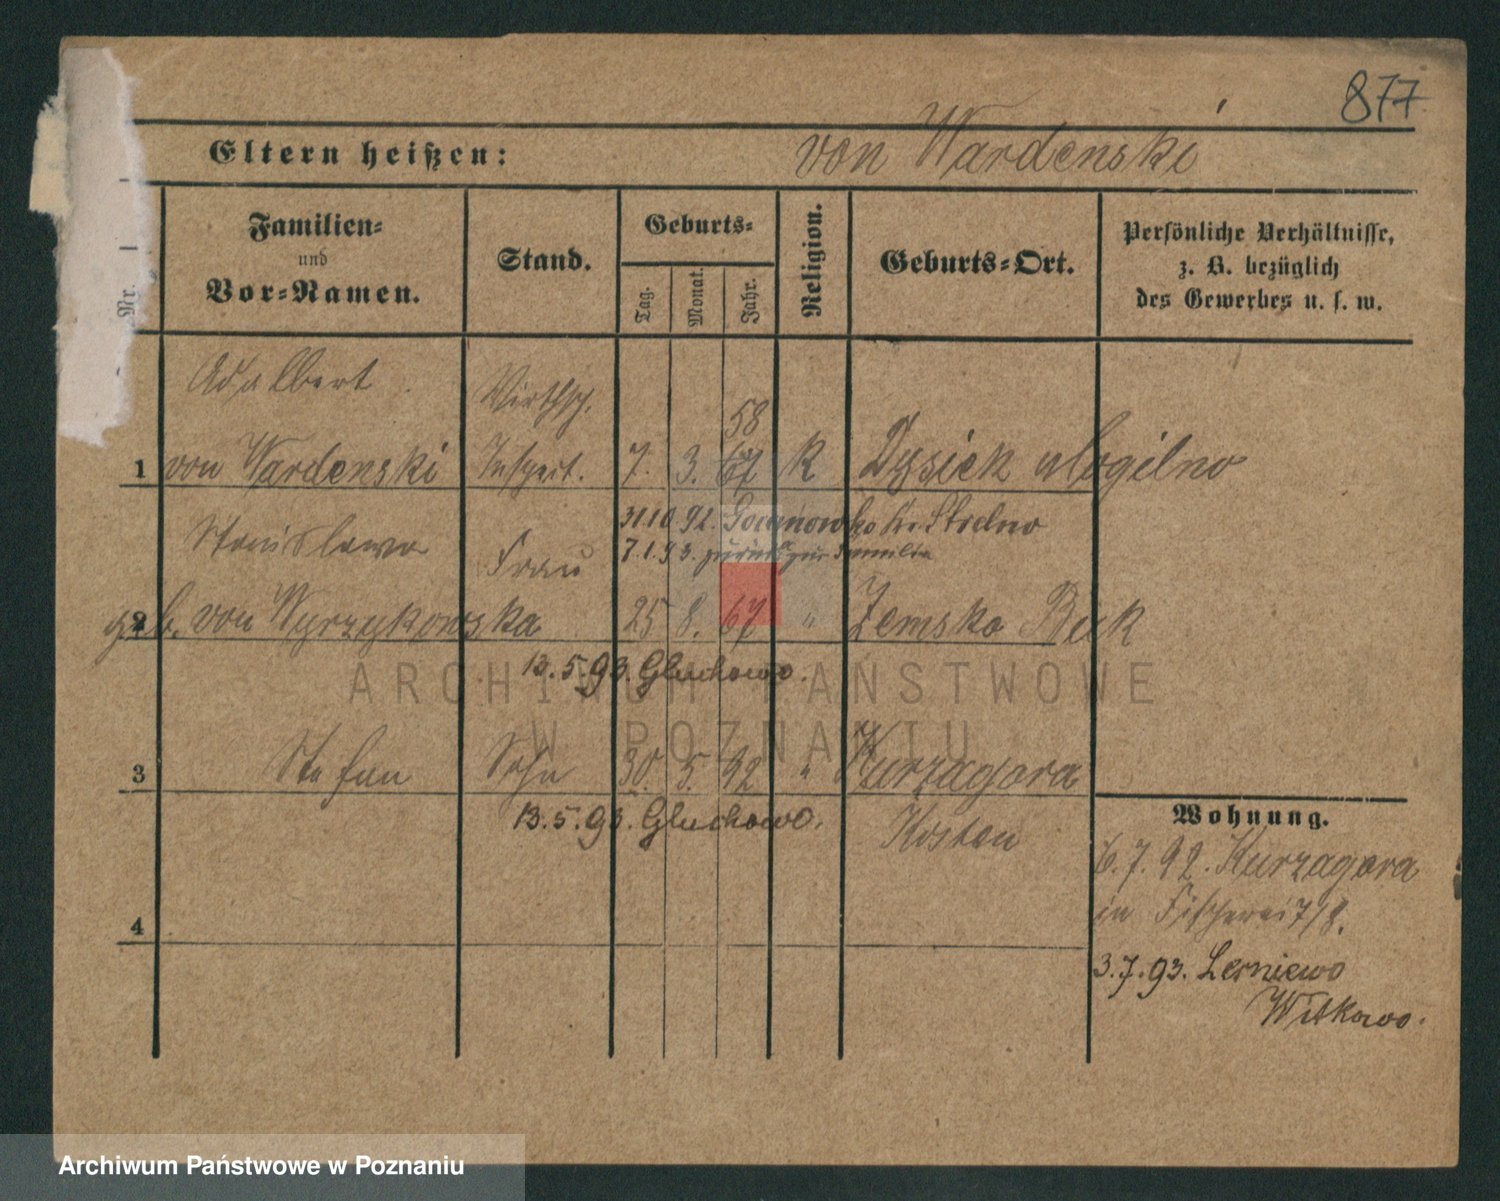 877
Eltern heißen: von Wardenski
Nr.
Familien-
und
Vor-Namen.
Stand.
Geburts-
Tag. Monat. Jahr.
Religion.
Geburts-Ort.
Persönliche Verhältnisse,
z. B. bezüglich
des Gewerbes u. s. w.
Adalbert Wirthsch. 58
1 von Wardenski Inspect. 7. 3. K Dysiek Mogilno
31.10.92. Strelno
Stanislawa Frau 7.1.93. zurück zur Familie
2 geb. von Wyrzykowska 25 8. 67 " Zemsko Buk
13.5.93. Gluchowo.
3 Stefan Sohn 30. 5. 92 " Kurzagora
13.5.93. Gluchowo. Kosten
4
Wohnung.
6.7.92. Kurzagora
in Fischerei 7/8.
3.7.93. Lerniewo
Witkowo.
ARCHIWUM PAŃSTWOWE
W POZNANIU
Archiwum Państwowe w Poznaniu